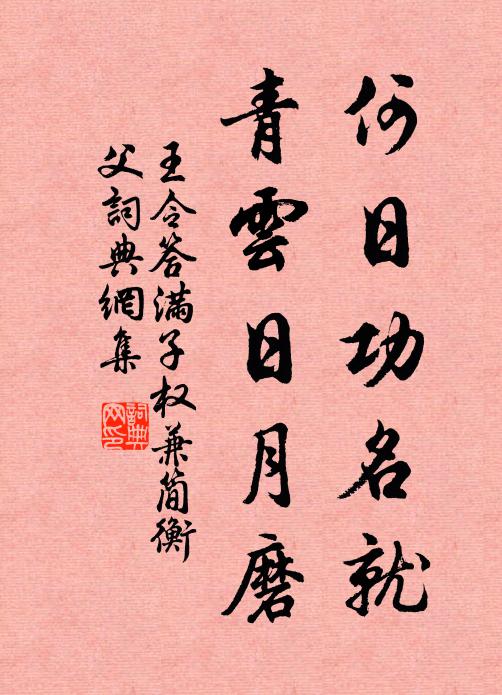 何日功名就
青雲日月磨
王令答满子权兼简衡
父詞典網集
詞典网印